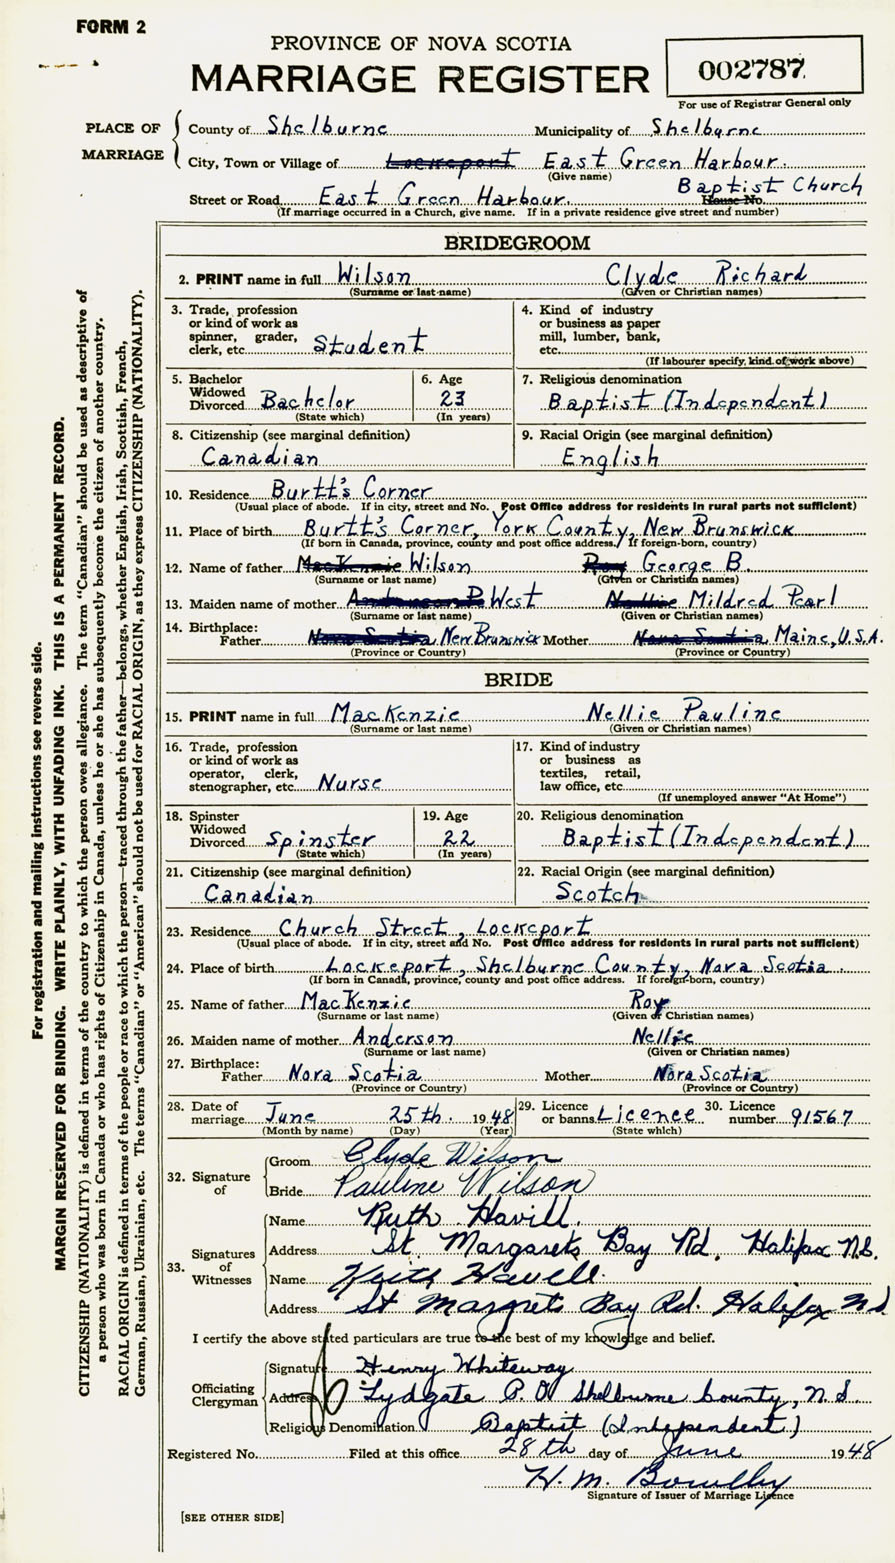 FORM 2
PROVINCE OF NOVA SCOTIA
MARRIAGE REGISTER
002787
For use of Registrar General only
PLACE OF MARRIAGE
County of Shelburne Municipality of Shelburne
City, Town or Village of Lockeport East Green Harbour.
(Give name)
Street or Road East Green Harbour. House No. Baptist Church
(If marriage occurred in a Church, give name. If in a private residence give street and number)
BRIDEGROOM
2. PRINT name in full Wilson Clyde Richard
(Surname or last name) (Given or Christian names)
3. Trade, profession
or kind of work as
spinner, grader,
clerk, etc. Student
4. Kind of industry
or business as paper
mill, lumber, bank,
etc.
(If labourer specify, kind of work above)
5. Bachelor
Widowed
Divorced Bachelor
(State which)
6. Age
23
(In years)
7. Religious denomination
Baptist (Independent)
8. Citizenship (see marginal definition)
Canadian
9. Racial Origin (see marginal definition)
English
10. Residence Burtt's Corner
(Usual place of abode. If in city, street and No. Post Office address for residents in rural parts not sufficient)
11. Place of birth Burtt's Corner, York County, New Brunswick
(If born in Canada, province, county and post office address. If foreign-born, country)
12. Name of father MacKenzie Wilson Roy George B.
(Surname or last name) (Given or Christian names)
13. Maiden name of mother Anderson West Nellie Mildred Pearl
(Surname or last name) (Given or Christian names)
14. Birthplace:
Father Nova Scotia New Brunswick Mother Nova Scotia Maine, U.S.A.
(Province or Country) (Province or Country)
BRIDE
15. PRINT name in full MacKenzie Nellie Pauline
(Surname or last name) (Given or Christian names)
16. Trade, profession
or kind of work as
operator, clerk,
stenographer, etc. Nurse
17. Kind of industry
or business as
textiles, retail,
law office, etc.
(If unemployed answer "At Home")
18. Spinster
Widowed
Divorced Spinster
(State which)
19. Age
22
(In years)
20. Religious denomination
Baptist (Independent)
21. Citizenship (see marginal definition)
Canadian
22. Racial Origin (see marginal definition)
Scotch
23. Residence Church Street, Lockeport
(Usual place of abode. If in city, street and No. Post Office address for residents in rural parts not sufficient)
24. Place of birth Lockeport, Shelburne County, Nova Scotia.
(If born in Canada, province, county and post office address. If foreign-born, country)
25. Name of father MacKenzie Roy
(Surname or last name) (Given or Christian names)
26. Maiden name of mother Anderson Nellie
(Surname or last name) (Given or Christian names)
27. Birthplace:
Father Nova Scotia Mother Nova Scotia
(Province or Country) (Province or Country)
28. Date of marriage June 25th. 1948
(Month by name) (Day) (Year)
29. Licence or banns Licence
(State which)
30. Licence number 91567
32. Signature of
Groom Clyde Wilson
Bride Pauline Wilson
33. Signatures of Witnesses
Name Ruth Havill.
Address St. Margarets Bay Rd. Halifax N.S.
Name Keith Havell.
Address St Margrets Bay Rd. Halifax N S
I certify the above stated particulars are true to the best of my knowledge and belief.
Officiating Clergyman
Signature Henry Whiteway
Address Lydgate P.O. Shelburne County, N.S.
Religious Denomination Baptist (Independent)
Registered No. Filed at this office 28th day of June 1948
H. M.
Signature of Issuer of Marriage Licence
[SEE OTHER SIDE]
For registration and mailing instructions see reverse side.
MARGIN RESERVED FOR BINDING. WRITE PLAINLY, WITH UNFADING INK. THIS IS A PERMANENT RECORD.
CITIZENSHIP (NATIONALITY) is defined in terms of the country to which the person owes allegiance. The term "Canadian" should be used as descriptive of
a person who was born in Canada or who has rights of Citizenship in Canada, unless he or she has subsequently become the citizen of another country.
RACIAL ORIGIN is defined in terms of the people or race to which the person—traced through the father—belongs, whether English, Irish, Scottish, French,
German, Russian, Ukrainian, etc. The terms "Canadian" or "American" should not be used for RACIAL ORIGIN, as they express CITIZENSHIP (NATIONALITY).